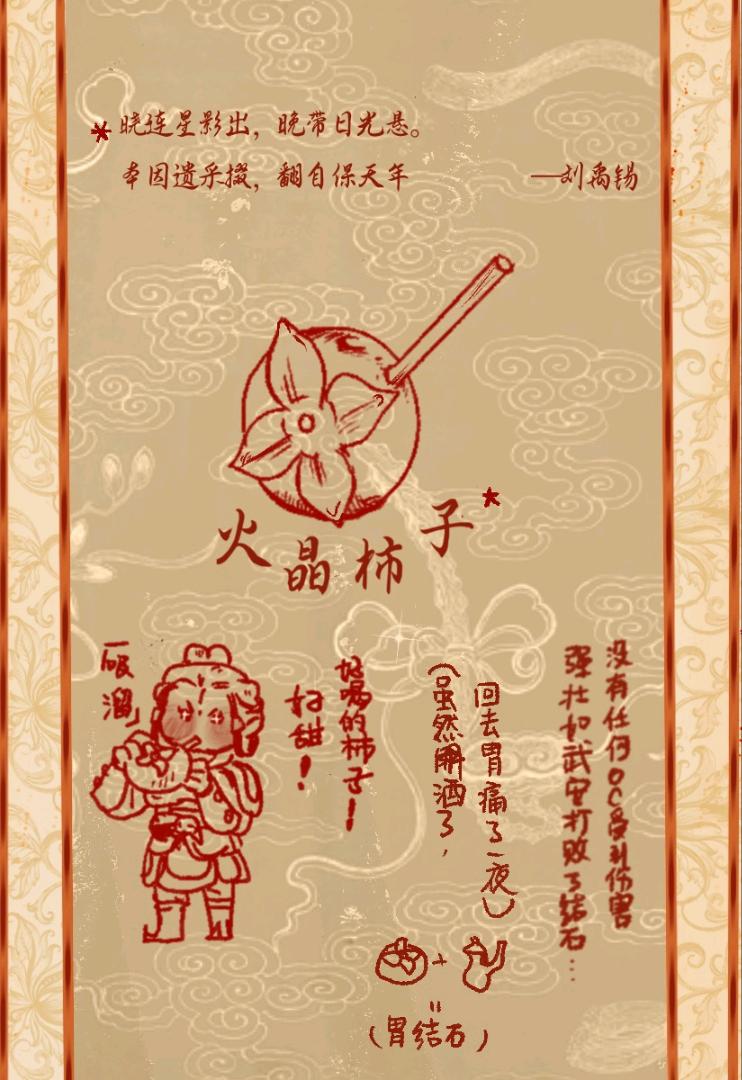 *晓连星影出，晚带日光悬。
本因遗采掇，翻自保天年
——刘禹锡
火晶柿子*
“吸溜”
好喝的柿子！
好甜！
（虽然解酒了，
回去胃痛了一夜）
没有任何OC受到伤害
强壮如武安打败了结石…
+
=
（胃结石）